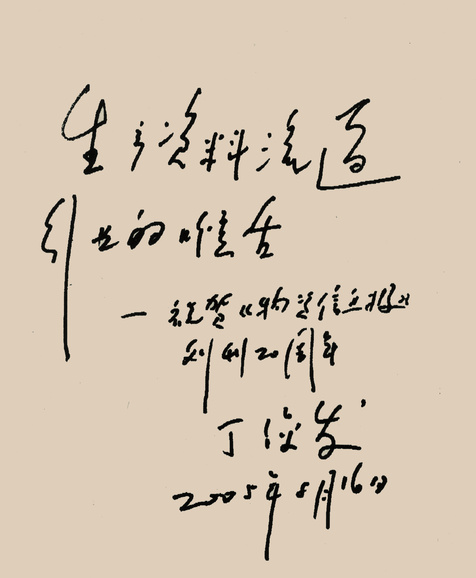 生产资料流通
行业的喉舌
— 祝贺《物资信息报》
创刊20周年
丁俊发
2005年8月16日